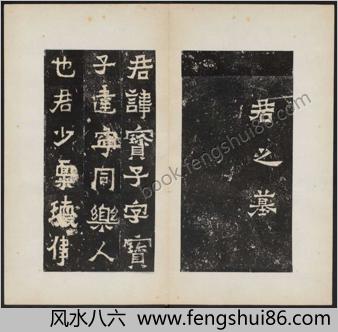 君之墓
君諱寶子字寶
子建寧同樂人
也君少稟瓌偉
book.fengshui86.com
风水八六 www.fengshui86.com